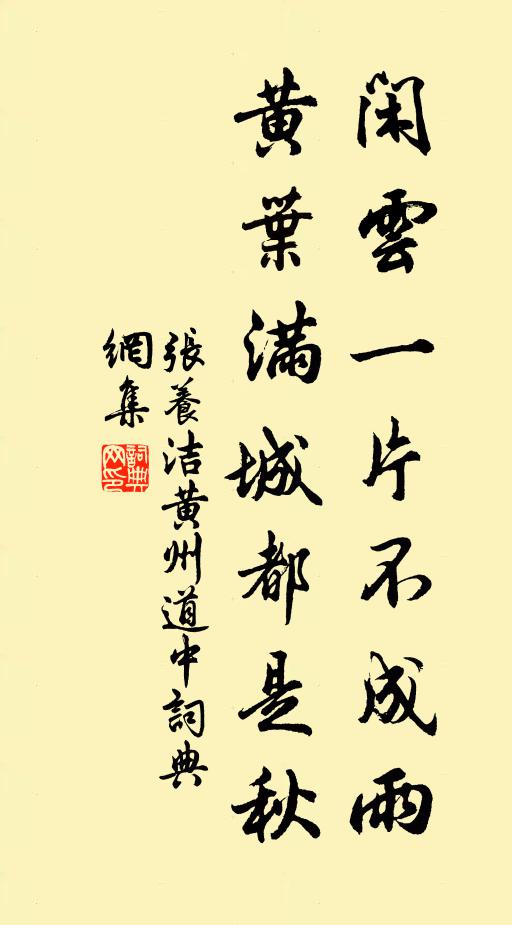 閑雲一片不成雨
黄葉滿城都是秋
張養洁黄州道中詞典
網集
詞典
网印